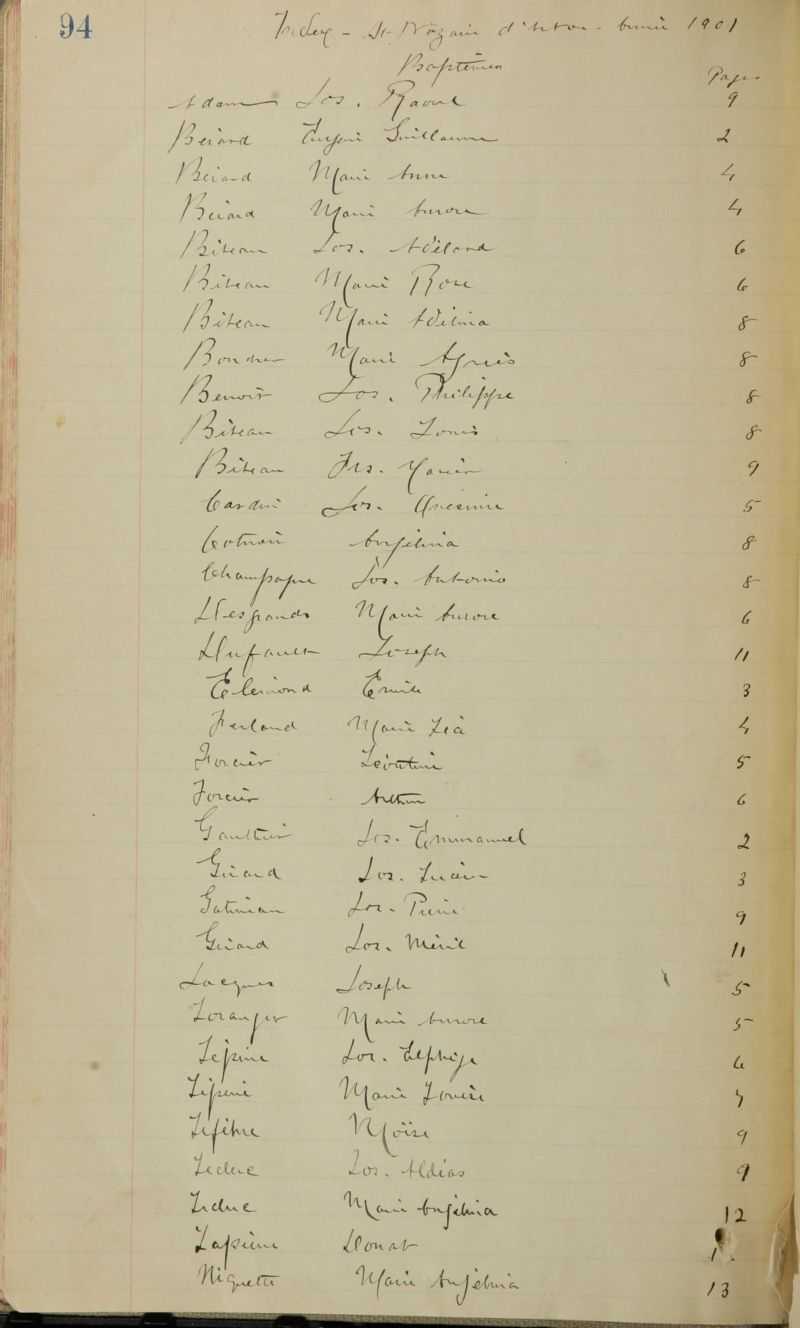 94
Index - St Nazaire d'Acton - Année 1901
Baptêmes
Page
Adam Jos. Raoul 9
Beiard Eugène Guillaume 2
Beiard Marie Anne 4
Beiard Marie Aurore 4
Biteau Jos. Adélard 6
Biteau Marie Rose 6
Biteau Marie Adélina 8
Boucher Marie Agnès 8
Benoit Jos. Philippe 8
Biteau Jos. Louis 8
Biteau Frs. Xavier 9
Cardin Jos. 5
Angélina 8
Champagne Jos. Antonio 8
Desgrands Marie Aurore 6
Dufault Joseph 11
Emile 3
Ferland Marie Léa 4
Forcier Léontine 5
Forcier 6
Gaultier Jos. Emmanuel 2
Girard Jos. Lucien 3
Gatineau Jos. Pierre 9
Girard Jos. 11
Jacques Joseph 5
Loranger Marie Aurore 5
Lépine Jos. Zéphije 6
Lépine Marie Louise
Lefebvre Moïse 9
Leduc Jos. Aldias 9
Leduc Marie Angélina 12
Lapierre Donat
Niquette Marie Angélina 13